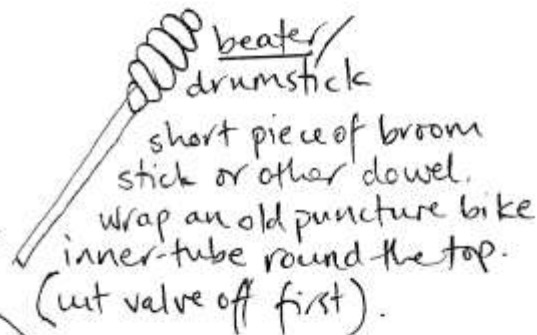 beater/
drumstick
short piece of broom
stick or other dowel.
wrap an old puncture bike
inner-tube round the top.
(cut valve off first).